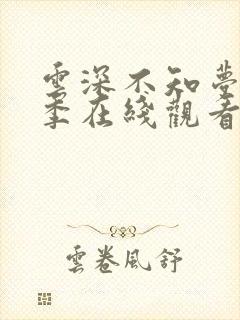 雲深不知夢
季在綫觀看
雲卷風舒